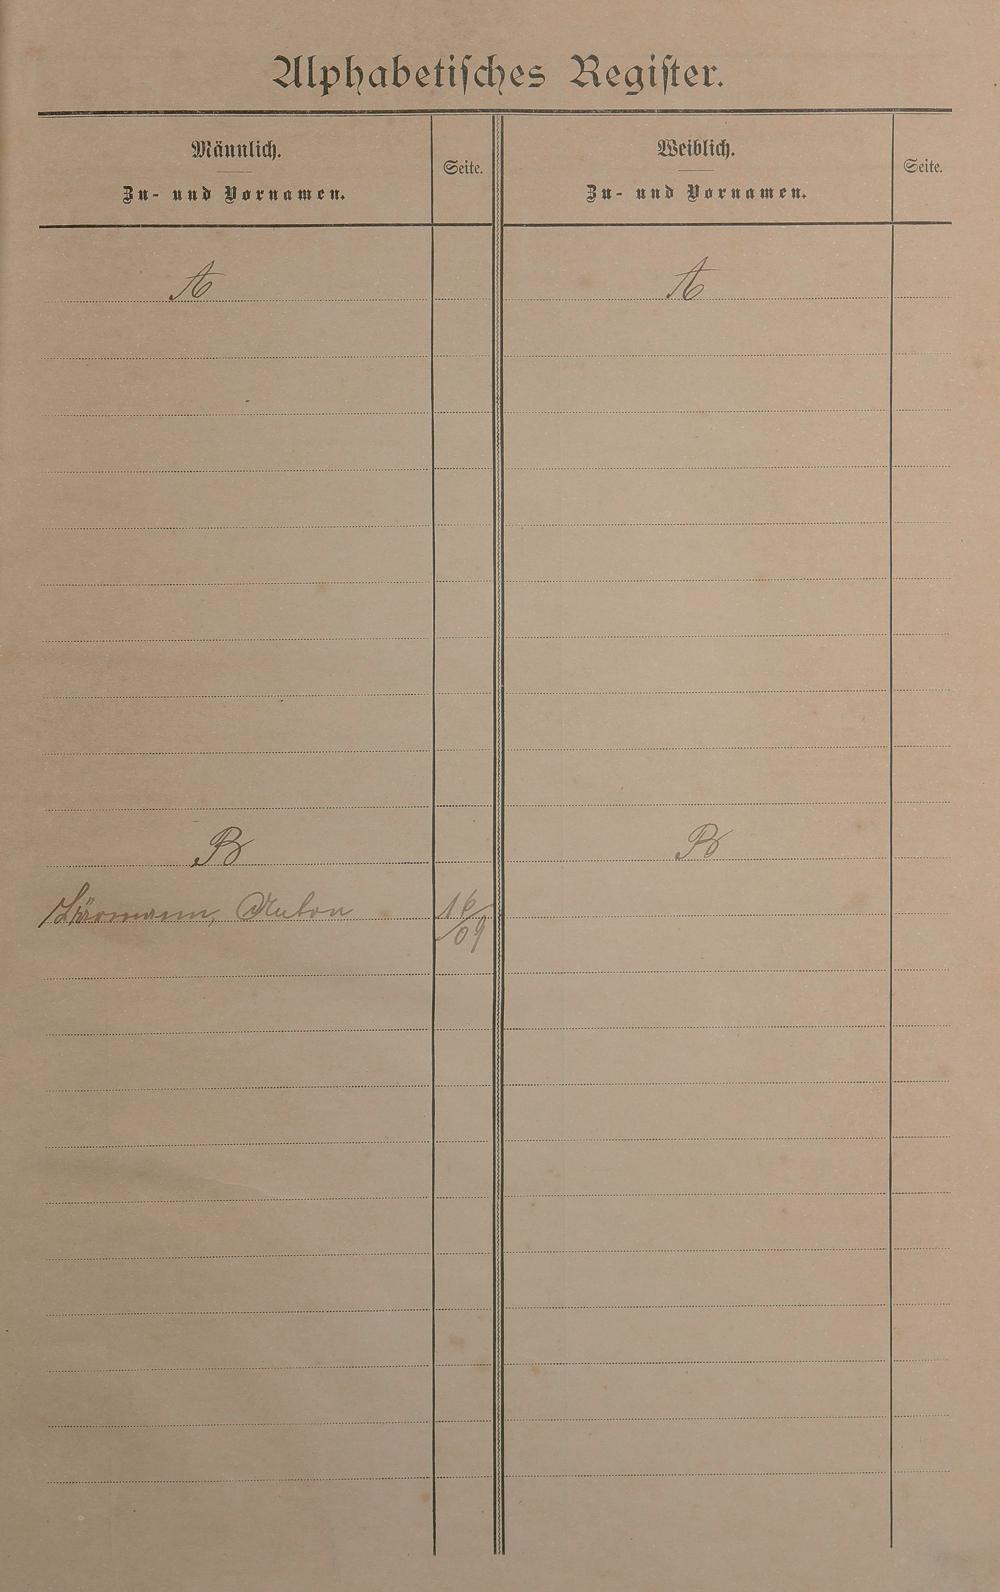 Alphabetisches Register.
Männlich.
Zu- und Vornamen.
Seite.
Weiblich.
Zu- und Vornamen.
Seite.
A
A
B
B
Bärmann, Anton 16/09